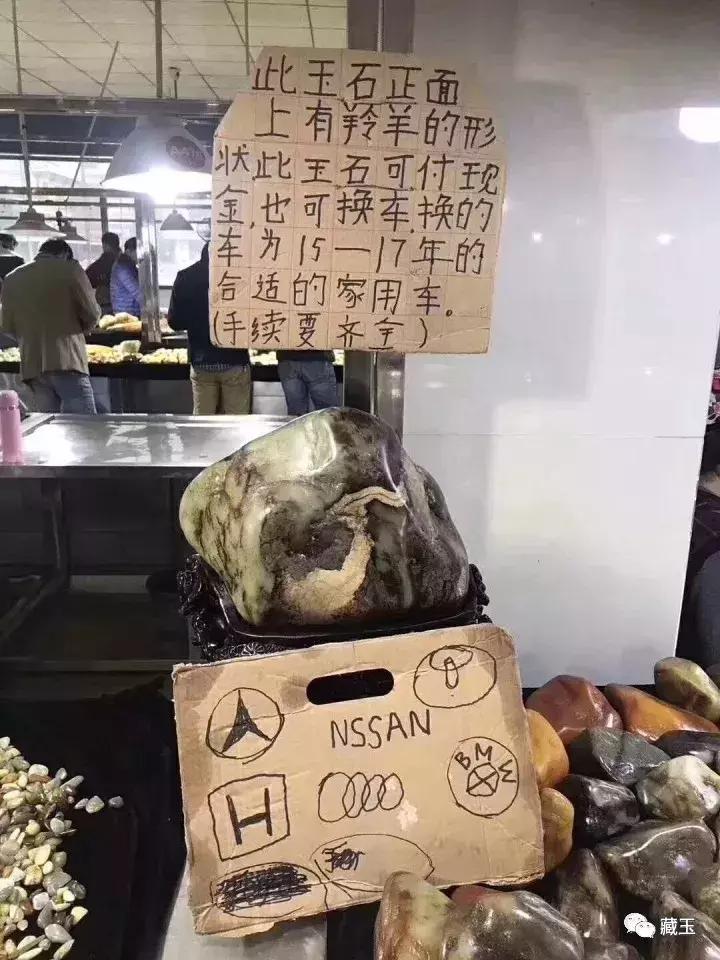 此玉石正面
上有羚羊的形
状此玉石可付现
金,也可换车,换的
车为15—17年的
合适的家用车。
(手续要齐全)
NSSAN
H
BMW
藏玉